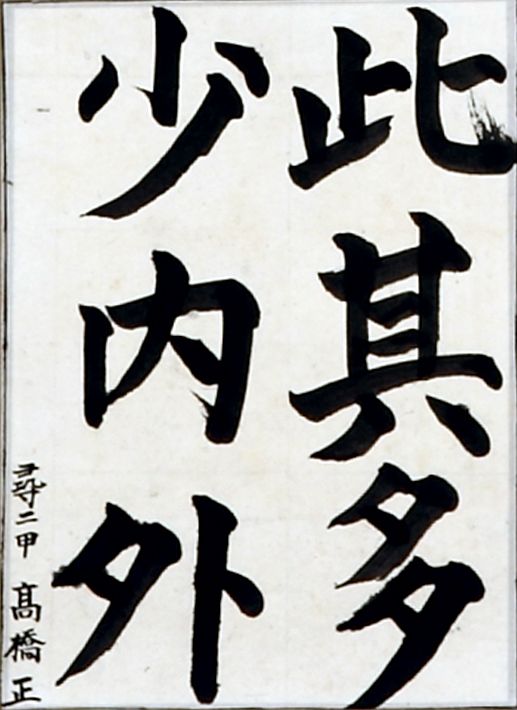 此其多
少内外
尋二甲 髙橋正